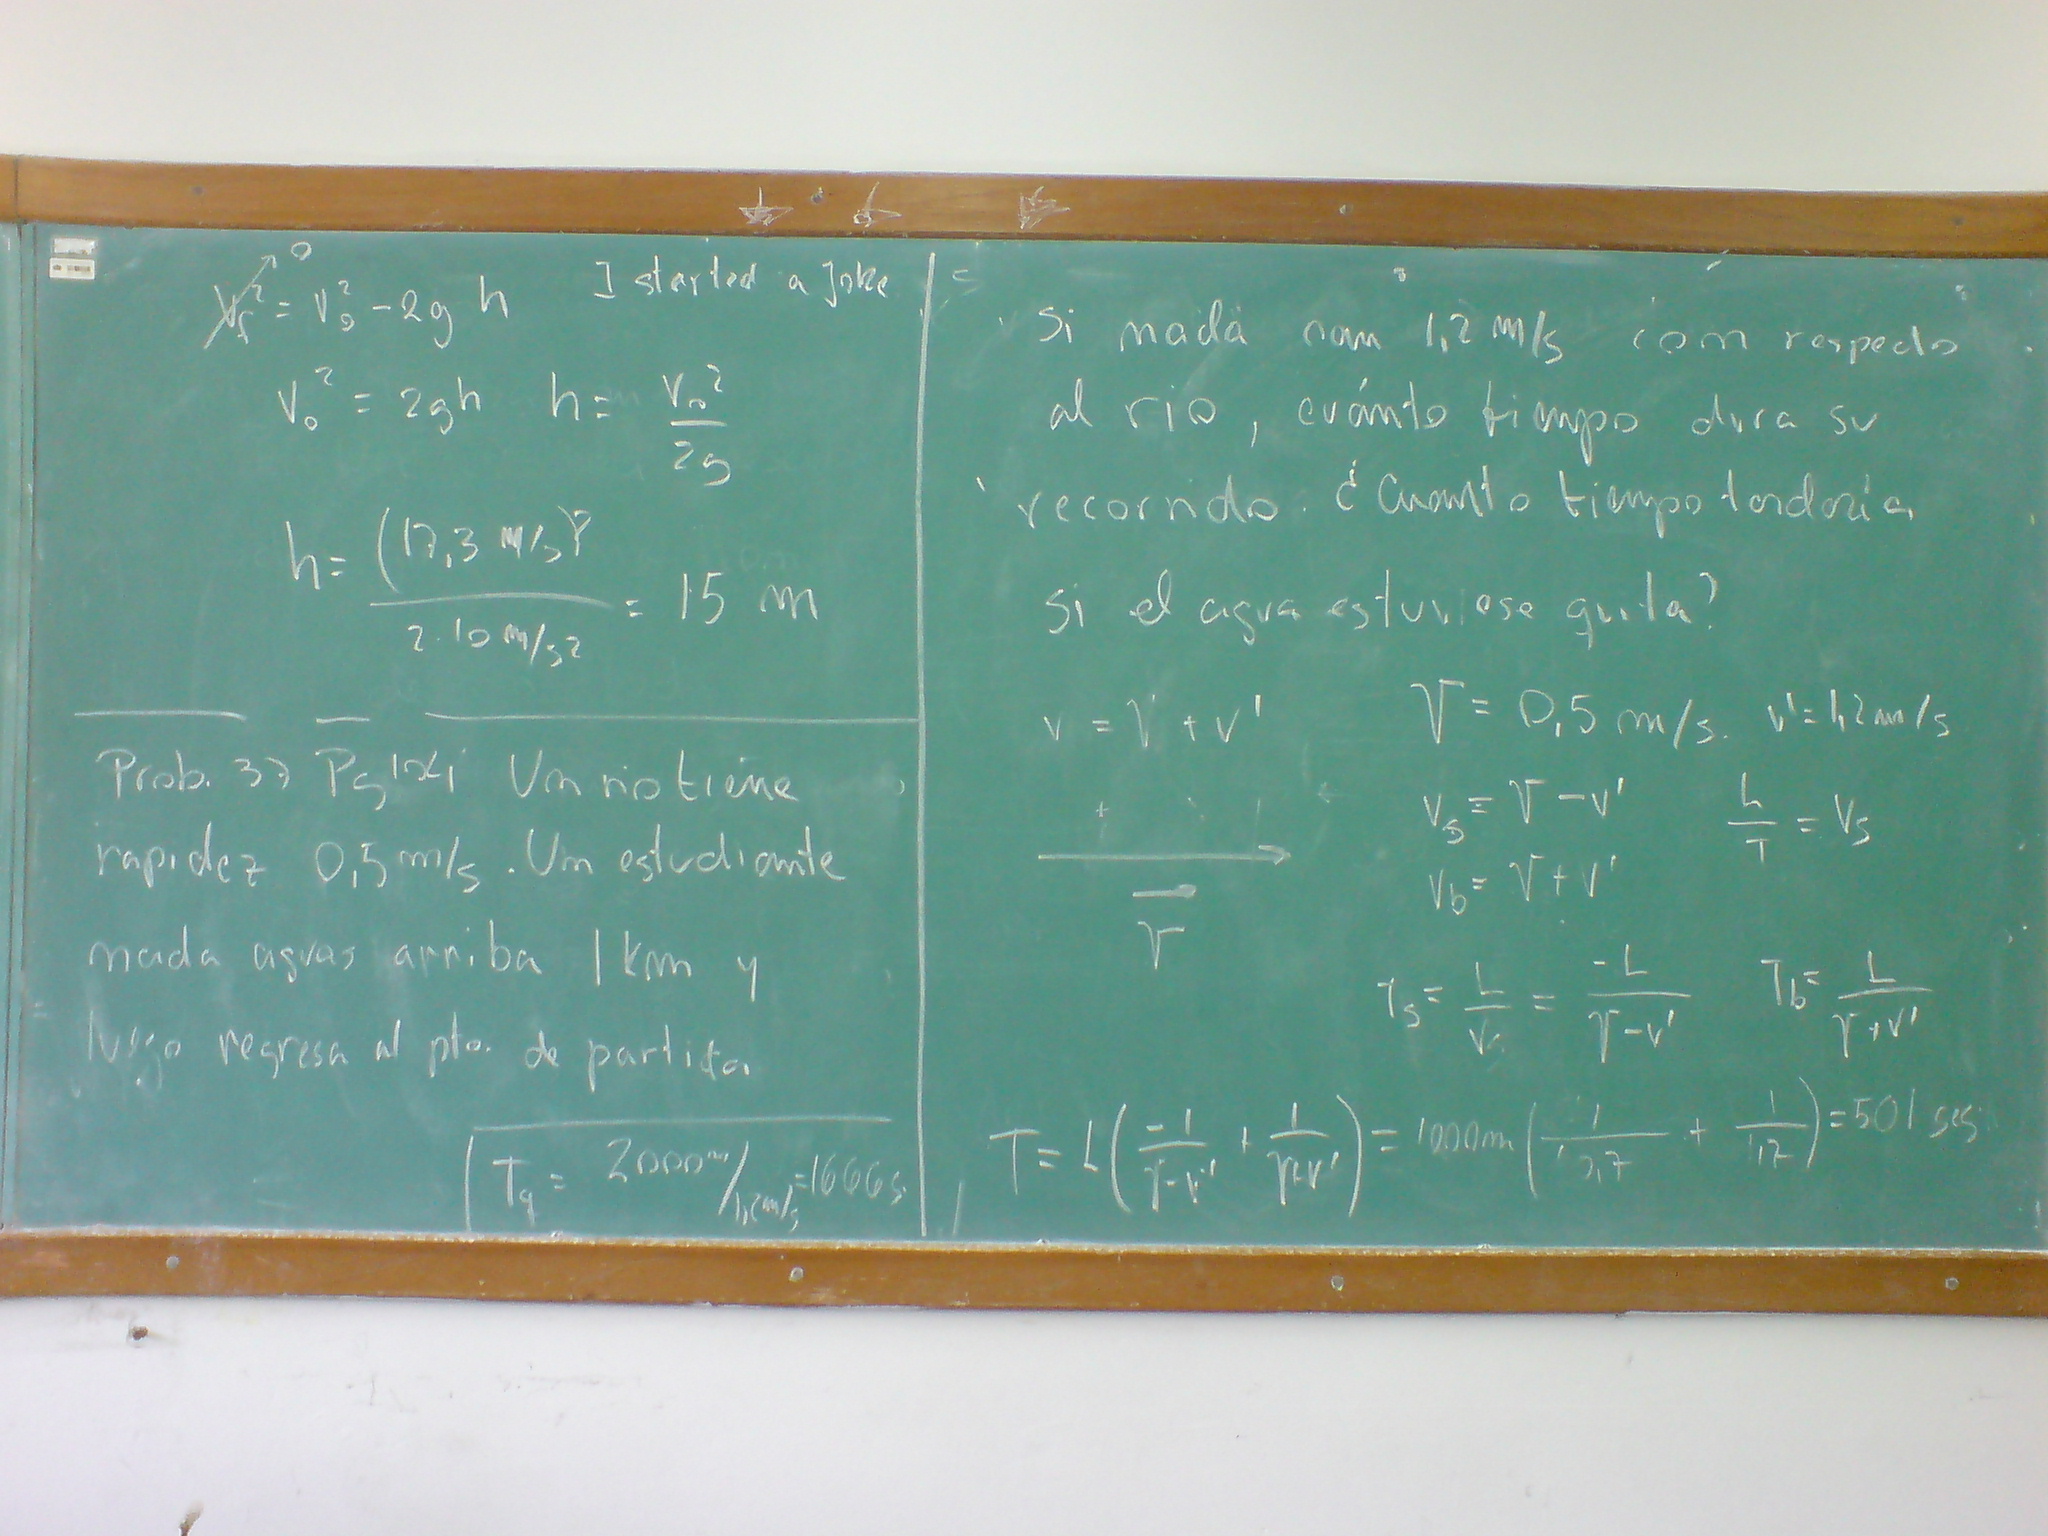 Vf² = V₀² - 2gh
0
I started a Joke
V₀² = 2gh h = V₀²/2g
h = (17,3 m/s)²/2·10 m/s2 = 15 m
Prob. 37 Un rio tiene
rapidez 0,5 m/s. Un estudiante
nada aguas arriba 1 km y
luego regresa al pto. de partida
Tq = 2000m/1,2m/s = 1666s.
Si nada 1,2 m/s com respecto
al rio, cuánto tiempo dura su
recorrido. ¿Cuanto tiempo
si el agua estuviese quita?
v = V + v' V = 0,5 m/s. v' = 1,2 m/s
+
V
Vs = V - v' L/T = Vs
Vb = V + v'
Ts = L/Vs = -L/V-v' Tb = L/V+v'
T = L(-1/V-v' + 1/V+v') = 1000m